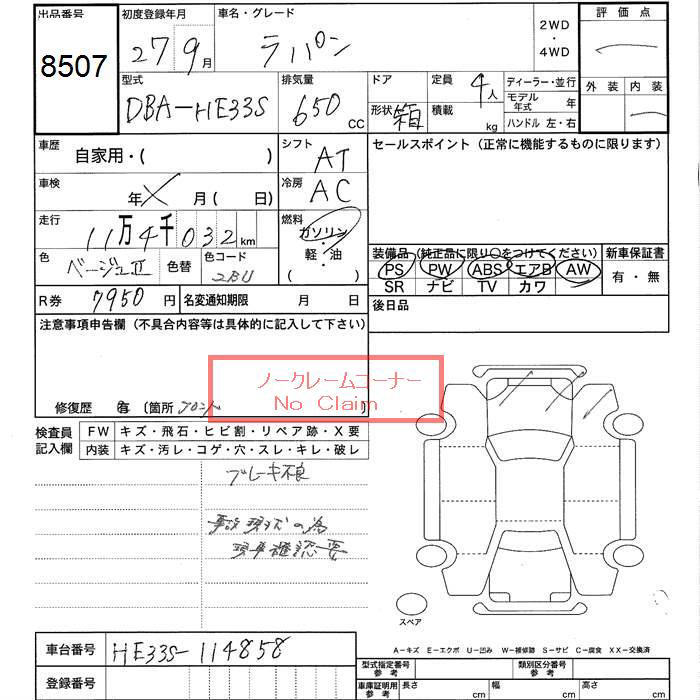 出品番号
8507
初度登録年月
27 9月
車名・グレード
ラパン
2WD
・
4WD
評価点
外装 内装
型式
DBA-HE33S
排気量
650 CC
ドア
形状 箱
定員
4人
積載
kg
ディーラー・並行
モデル年式 年
ハンドル 左・右
車歴
自家用・( )
シフト
AT
セールスポイント(正常に機能するものに限ります)
車検
年 月( 日)
冷房
AC
走行
11万4千032km
燃料
ガソリン
・
軽・油
( )
色
ベージュII
色替
色コード
2BU
装備品(純正品に限り○をつけてください)
新車保証書
PS PW ABS エアB AW
SR ナビ TV カワ
有・無
R券 7950円
名変通知期限 月 日
後日品
注意事項申告欄(不具合内容等は具体的に記入して下さい)
ノークレームコーナー
No Claim
修復歴 有 〔箇所 フロント
検査員
記入欄
FW キズ・飛石・ヒビ割・リペア跡・X要
内装 キズ・汚レ・コゲ・穴・スレ・キレ・破レ
ブレーキ不良
事故現状の為
現車確認要
スペア
A-キズ E-エクボ U-凹み W-補修跡 S-サビ C-腐食 XX-交換済
車台番号 HE33S-114858
登録番号
型式指定番号
参考
類別区分番号
参考
車庫証明用
参考
長さ cm 幅 cm 高さ cm